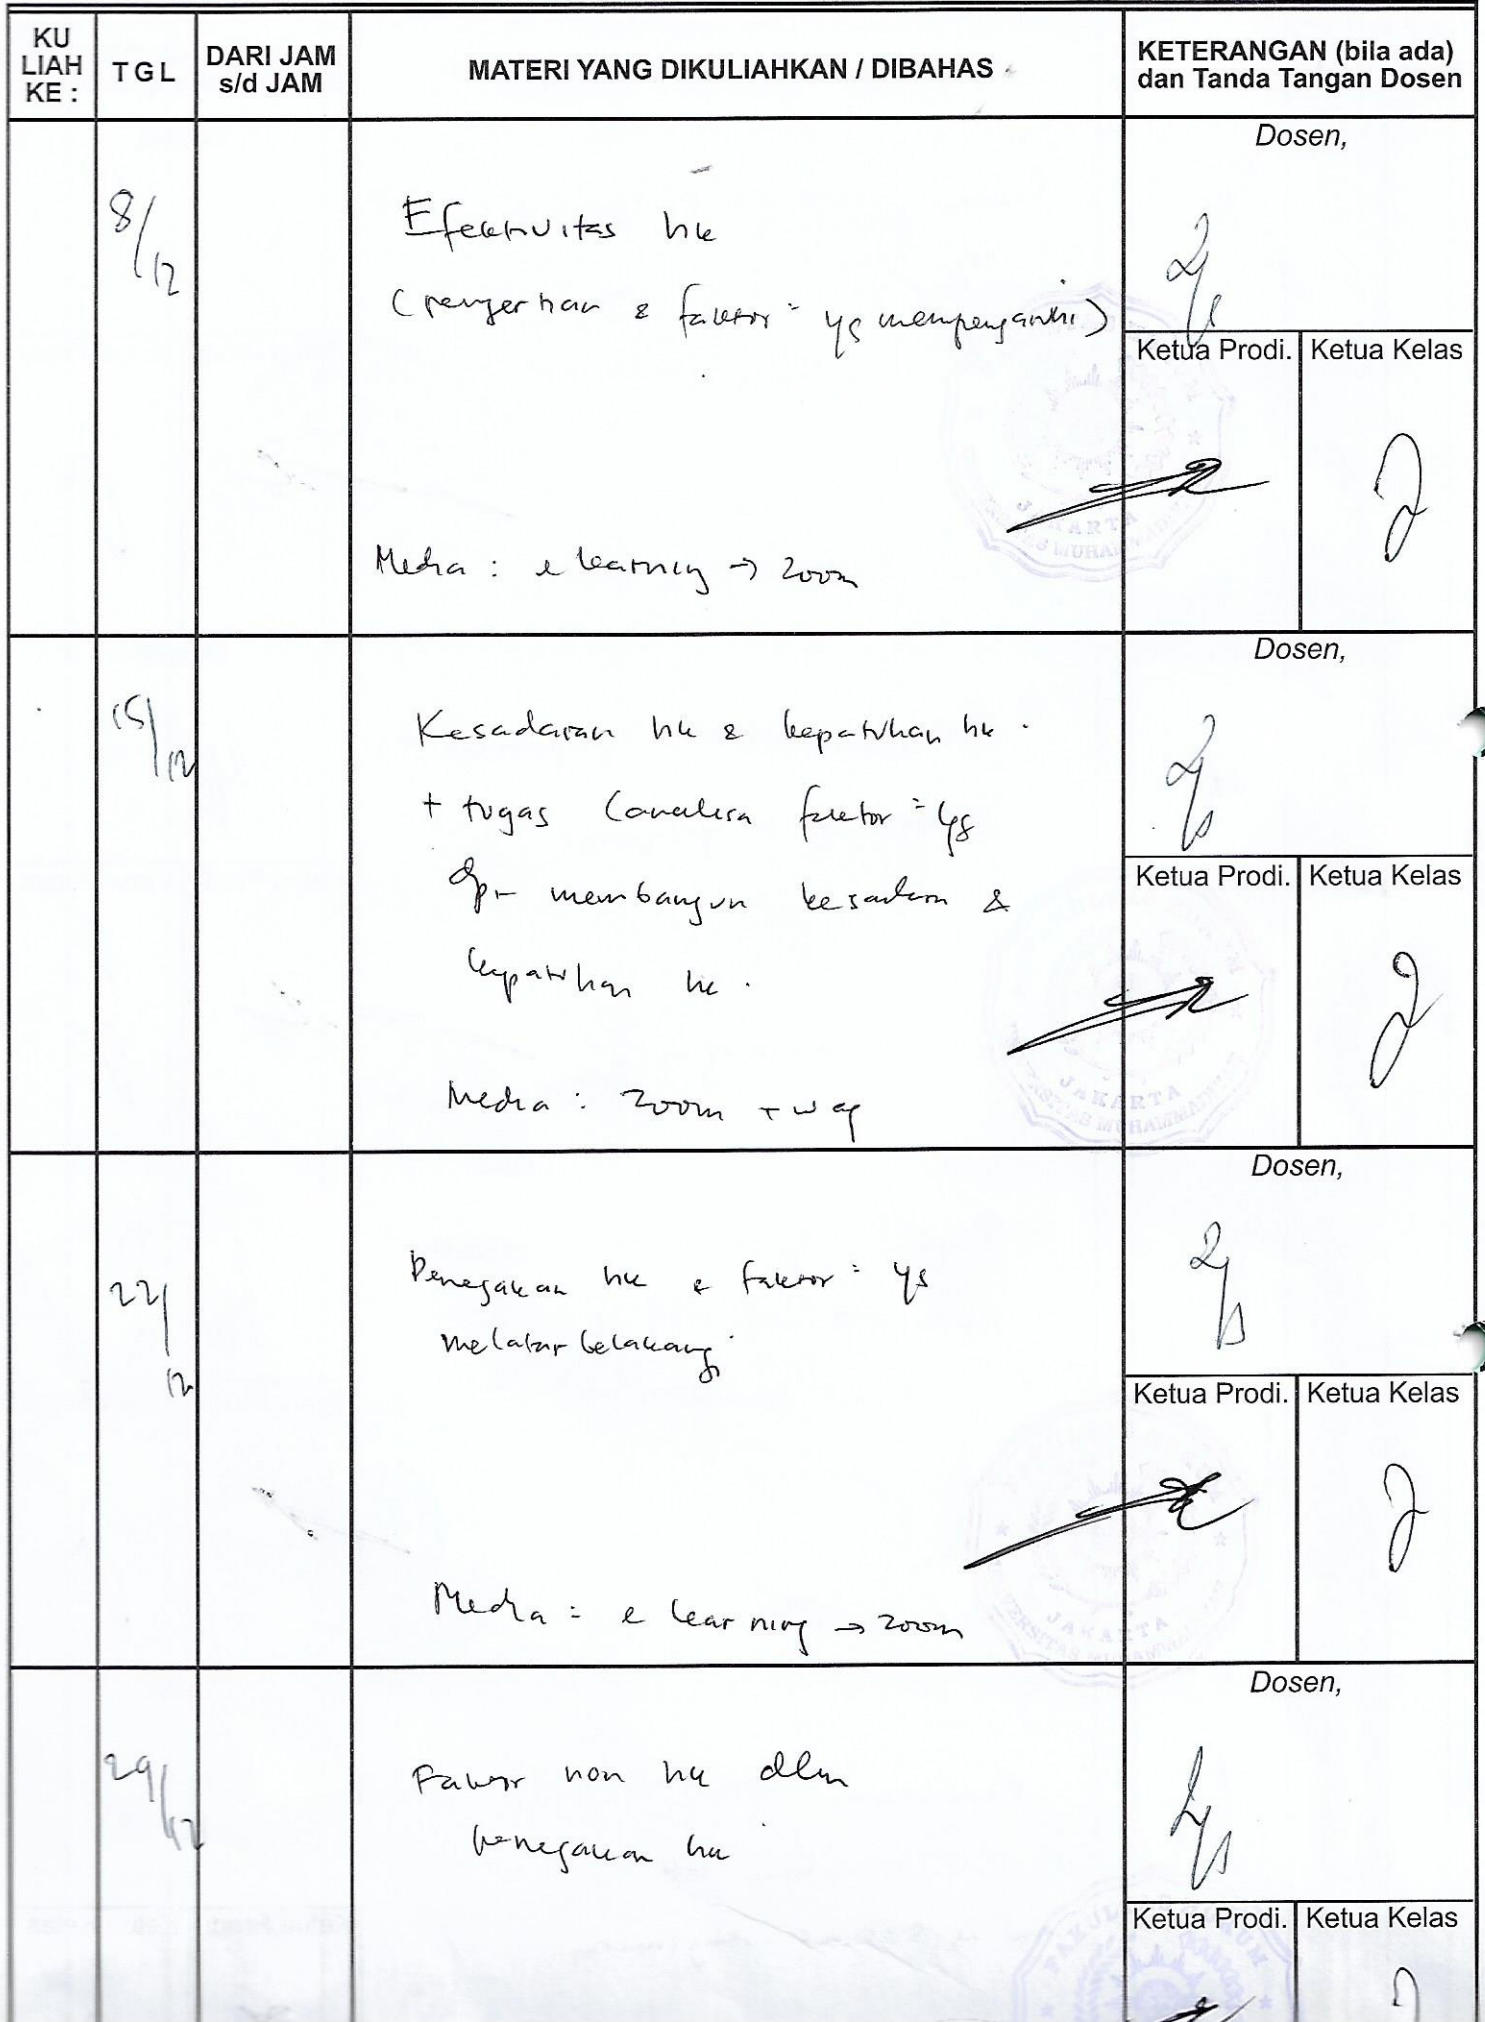 KU
LIAH
KE :
TGL
DARI JAM
s/d JAM
MATERI YANG DIKULIAHKAN / DIBAHAS
KETERANGAN (bila ada)
dan Tanda Tangan Dosen
8/12
Efektivitas hk
(pengertian & faktor = yg mempengaruhi)
Media : e learning → zoom
Dosen,
Ketua Prodi. Ketua Kelas
JAKARTA
15/12
Kesadaran hk & kepatuhan hk .
+ tugas (analisa faktor = yg
dpt membangun kesadaran &
kepatuhan hk .
Media : Zoom + wag
Dosen,
Ketua Prodi. Ketua Kelas
JAKARTA
22/12
Penegakan hk & faktor = yg
melatar belakangi
Media : e learning → zoom
Dosen,
Ketua Prodi. Ketua Kelas
JAKARTA
29/12
Faktor non hk dlm
penegakan hk
Dosen,
Ketua Prodi. Ketua Kelas